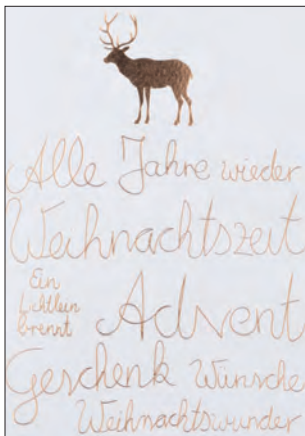 Alle Jahre wieder
Weihnachtszeit
Ein
Lichtlein
brennt
Advent
Geschenk Wünsche
Weihnachtswunder